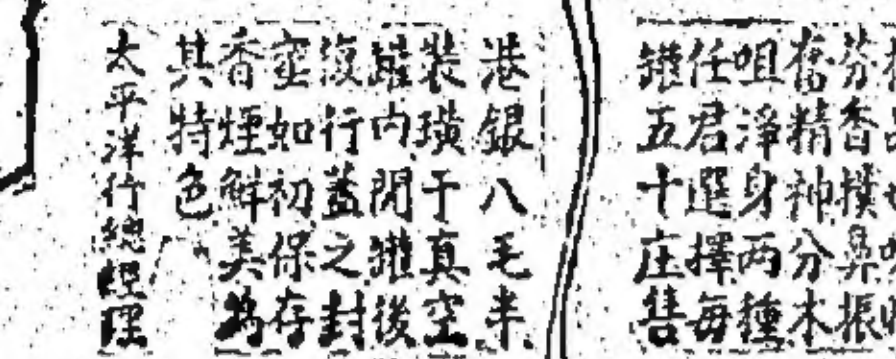 芬香撲鼻振
奮精神分木
咀淨身兩種
任君選擇每
罐五十庄售
港銀八毛半
裝璜于真空
罐內開罐後
復行蓋之封
密如初保存
香煙鮮美為
其特色
太平洋行總經理